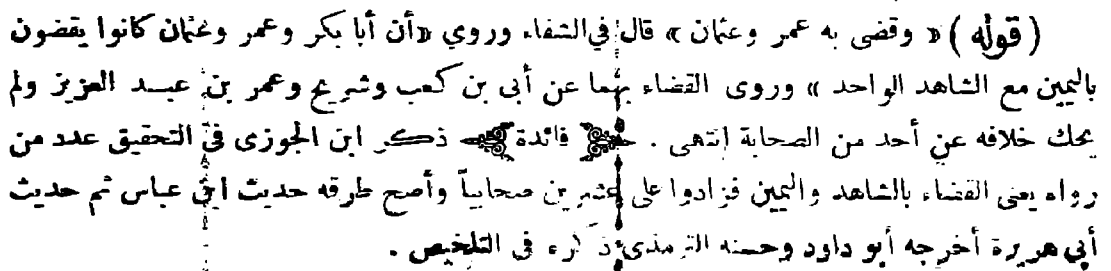 ( قوله ) « وقضى به عمر وعثمان » قال في الشفاء وروي «أن أبا بكر وعمر وعثمان كانوا يقضون
باليمين مع الشاهد الواحد » وروى القضاء بهما عن أبى بن كعب وشريح وعمر بن عبد العزيز ولم
يحك خلافه عن أحد من الصحابة إنتهى . فائدة ذكر ابن الجوزى في التحقيق عدد من
رواه يعنى القضاء بالشاهد واليمين فزادوا على عشرين صحابياً وأصح طرقه حديث ابن عباس ثم حديث
أبي هريرة أخرجه أبو داود وحسنه الترمذي ذكره فى التلخيص .